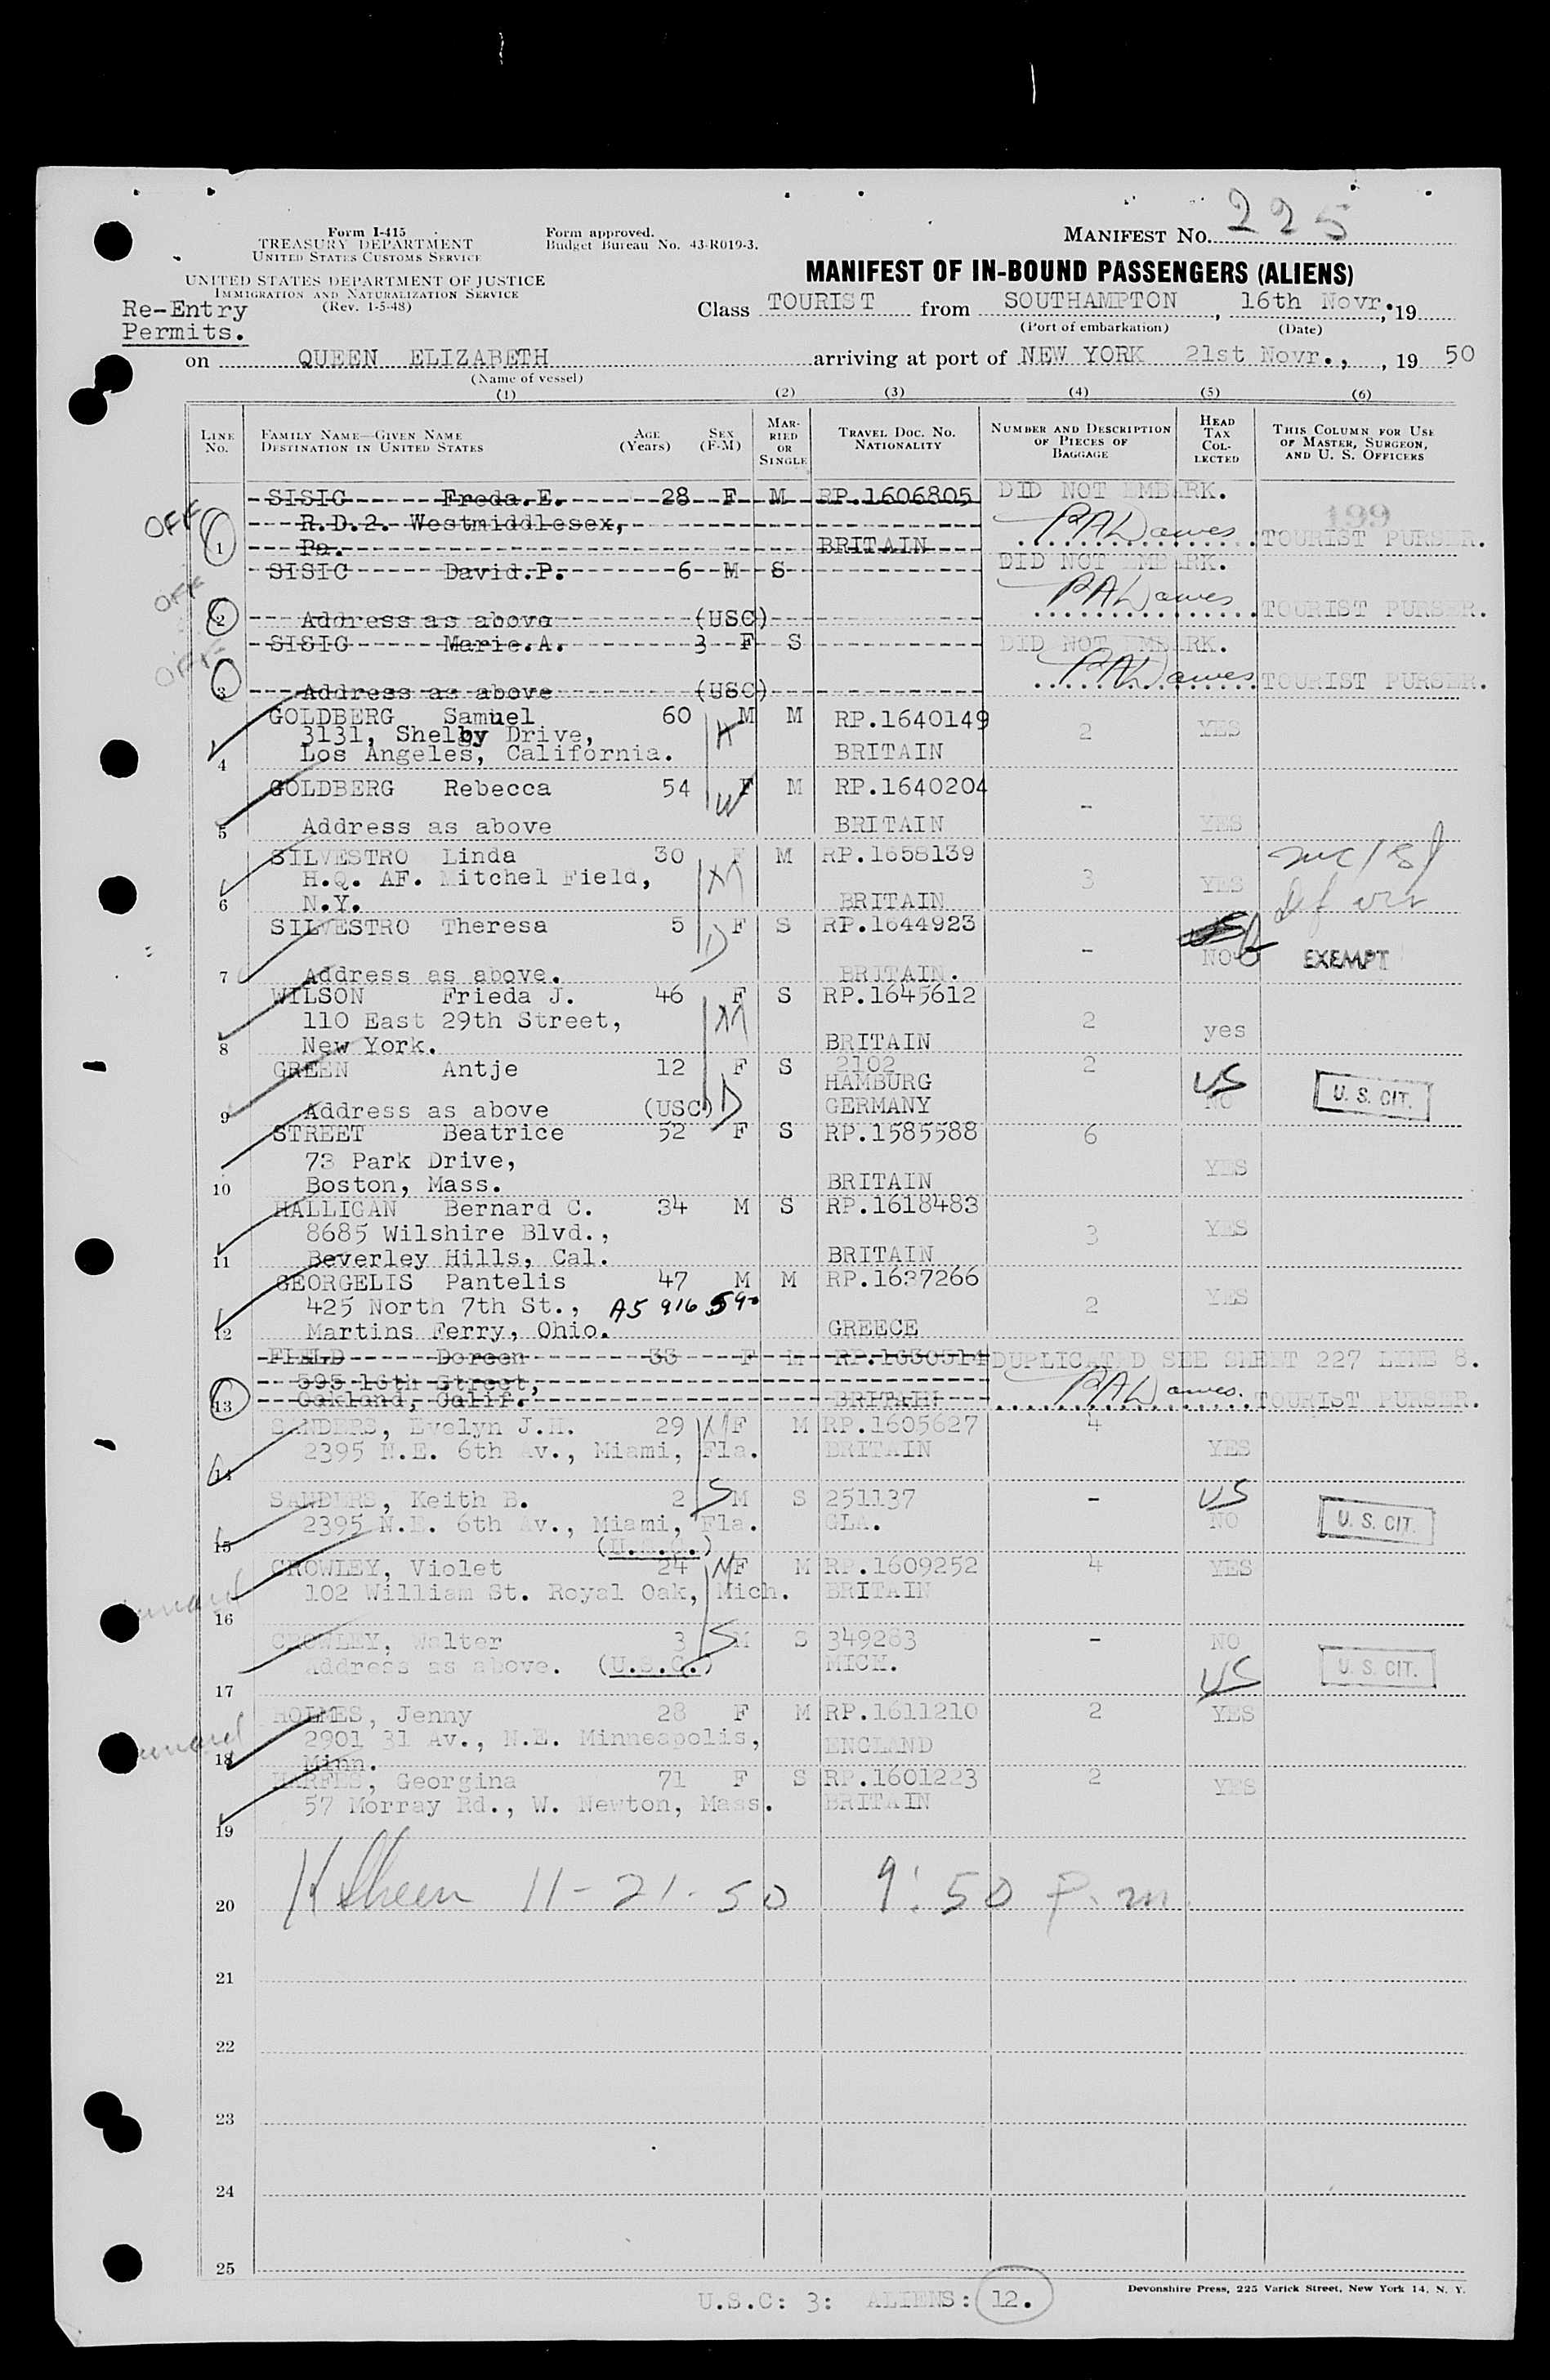 Form I-415
TREASURY DEPARTMENT
UNITED STATES CUSTOMS SERVICE
UNITED STATES DEPARTMENT OF JUSTICE
IMMIGRATION AND NATURALIZATION SERVICE
(Rev. 1-5-48)
Form approved.
Budget Bureau No. 43-R019-3.
MANIFEST NO. 225
MANIFEST OF IN-BOUND PASSENGERS (ALIENS)
Re-Entry
Permits.
Class TOURIST from SOUTHAMPTON, 16th Novr., 19
(Port of embarkation) (Date)
on QUEEN ELIZABETH arriving at port of NEW YORK 21st Novr., , 19 50
(Name of vessel)
(1) (2) (3) (4) (5) (6)
LINE NO.
FAMILY NAME—GIVEN NAME
DESTINATION IN UNITED STATES
AGE (Years)
SEX (F-M)
MARRIED OR SINGLE
TRAVEL DOC. NO.
NATIONALITY
NUMBER AND DESCRIPTION OF PIECES OF BAGGAGE
HEAD TAX COLLECTED
THIS COLUMN FOR USE OF MASTER, SURGEON, AND U. S. OFFICERS
199
SISIC Freda.E. 28 F M RP.1606805 DID NOT EMBARK.
OFF R.D.2. Westmiddlesex,
1 Pa. BRITAIN PADawes TOURIST PURSER.
SISIC David.P. 6 M S DID NOT EMBARK.
OFF
2 Address as above (USC) PADawes TOURIST PURSER.
SISIC Marie.A. 3 F S DID NOT EMBARK.
OFF
3 Address as above (USC) PADawes TOURIST PURSER.
GOLDBERG Samuel 60 M M RP.1640149
3131, Shelby Drive, H 2 YES
4 Los Angeles, California. BRITAIN
GOLDBERG Rebecca 54 F M RP.1640204
W -
5 Address as above BRITAIN YES
SILVESTRO Linda 30 F M RP.1658139
H.Q. AF. Mitchel Field, M 3 YES
6 N.Y. BRITAIN
SILVESTRO Theresa 5 F S RP.1644923
D - NO EXEMPT
7 Address as above. BRITAIN.
WILSON Frieda J. 46 F S RP.1645612
110 East 29th Street, M 2 yes
8 New York. BRITAIN
GREEN Antje 12 F S 2102 2
HAMBURG US U. S. CIT.
9 Address as above (USC) D GERMANY NO
STREET Beatrice 52 F S RP.1585588 6
73 Park Drive, YES
10 Boston, Mass. BRITAIN
HALLIGAN Bernard C. 34 M S RP.1618483
8685 Wilshire Blvd., 3 YES
11 Beverley Hills, Cal. BRITAIN
GEORGELIS Pantelis 47 M M RP.1637266
425 North 7th St., A5 916 590 2 YES
12 Martins Ferry, Ohio. GREECE
FIELD Doreen 33 F M RP.1630514 DUPLICATED SEE SHEET 227 LINE 8.
595 16th Street,
13 Oakland, Calif. BRITAIN PADawes. TOURIST PURSER.
SANDERS, Evelyn J.H. 29 M F M RP.1605627 4
2395 N.E. 6th Av., Miami, Fla. BRITAIN YES
14
SANDERS, Keith B. 2 S M S 251137 - US
2395 N.E. 6th Av., Miami, Fla. GLA. NO U. S. CIT.
15 (U.S.C.)
CROWLEY, Violet 24 M F M RP.1609252 4 YES
102 William St. Royal Oak, Mich. BRITAIN
16
CROWLEY, Walter 3 S M S 349283 - NO
Address as above. (U.S.C.) MICH. US U. S. CIT.
17
HOLMES, Jenny 28 F M RP.1611210 2 YES
2901 31 Av., N.E. Minneapolis, ENGLAND
18 Minn.
Georgina 71 F S RP.1601223 2 YES
57 Morray Rd., W. Newton, Mass. BRITAIN
19
20 11-21-50 9:50 P.m.
21
22
23
24
25
Devonshire Press, 225 Varick Street, New York 14, N. Y.
U.S.C: 3: ALIENS: 12.